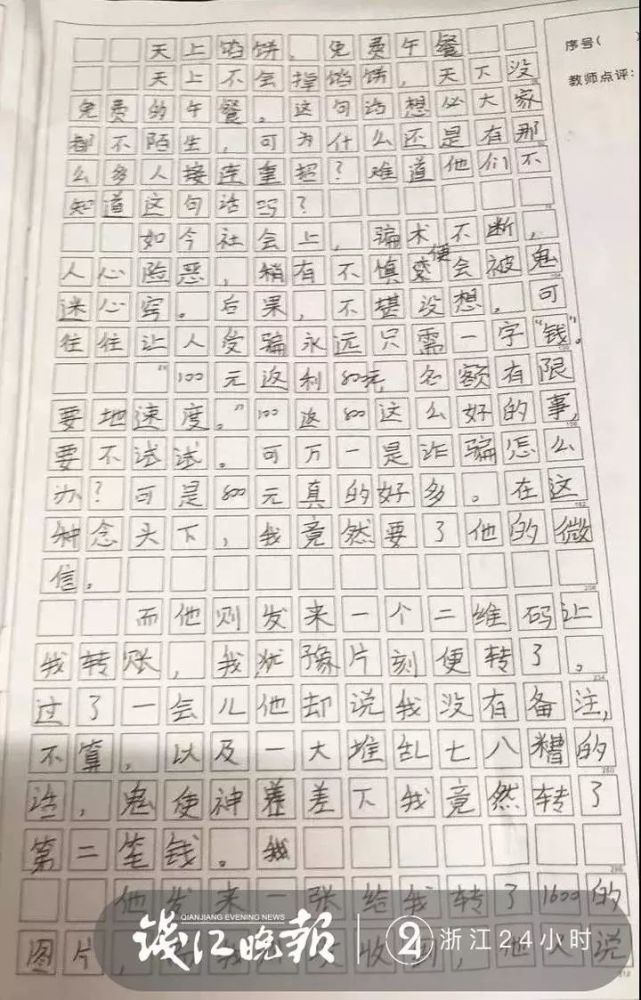 天上馅饼，免费午餐
序号( )
天上不会掉馅饼，天下没
教师点评：
免费的午餐。这句话想必大家
都不陌生，可为什么还是有那
么多人接连重招？难道他们不
知道这句话吗？
如今社会上，骗术不断，
人心险恶，稍有不慎便会被鬼
迷心窍。后果，不堪设想。可
往往让人受骗永远只需一字“钱”。
“100元返利800元，名额有限
要地速度。”100返800这么好的事，
要不试试。可万一是诈骗怎么
办？可是800元真的好多。在这
种念头下，我竟然要了他的微
信。
而他则发来一个二维码让
我转账，我犹豫片刻便转了。
过了一会儿他却说我没有备注，
不算，以及一大堆乱七八糟的
话，鬼使神差差下我竟然转了
第二笔钱。我
他发来一张给我转了1600的
图片，我收到，他又说
钱江晚报
QIANJIANG EVENING NEWS
浙江24小时